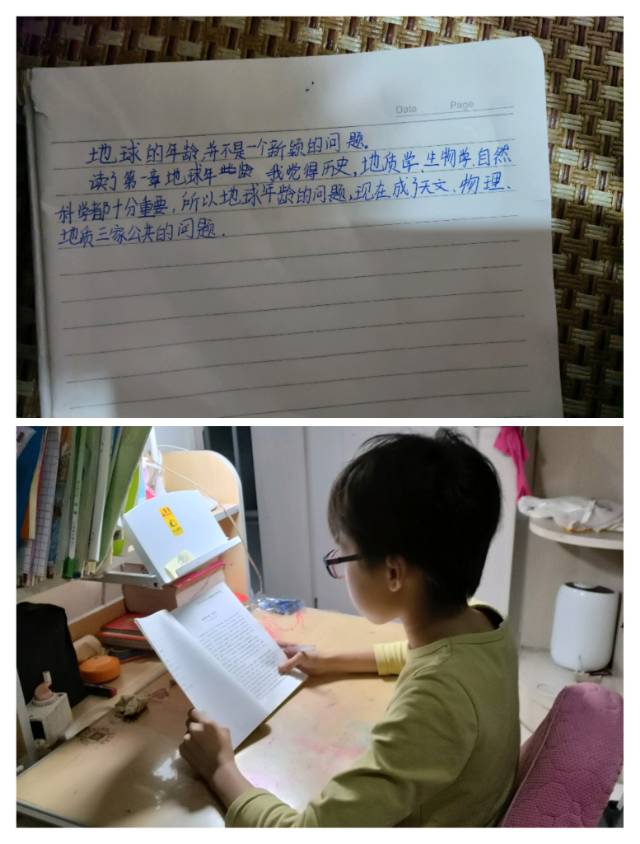 Date Page
地球的年龄,并不是一个新颖的问题。
读了第一章地球年龄 我觉得历史,地质学、生物学,自然
科学都十分重要,所以地球年龄的问题,现在成了天文、物理、
地质三家公共的问题.